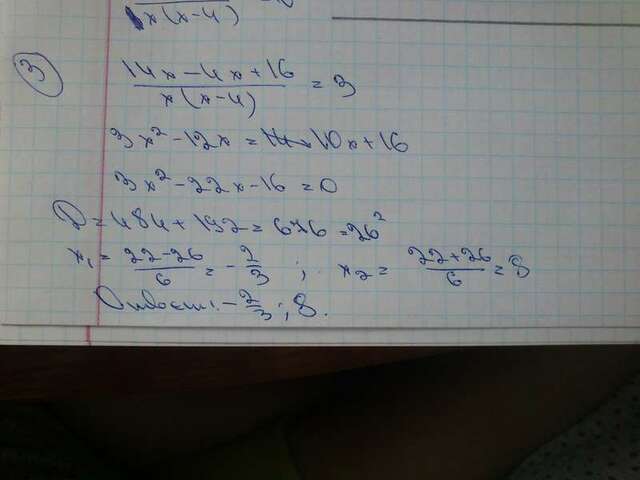 x(x-4)
3
14x-4x+16 / x(x-4) = 3
3x²-12x=10x+16
3x²-22x-16=0
D=484+192=676=26²
x₁= 22-26 / 6 = - 2/3 ; x₂= 22+26 / 6 = 8
Ответ: - 2/3 ; 8.